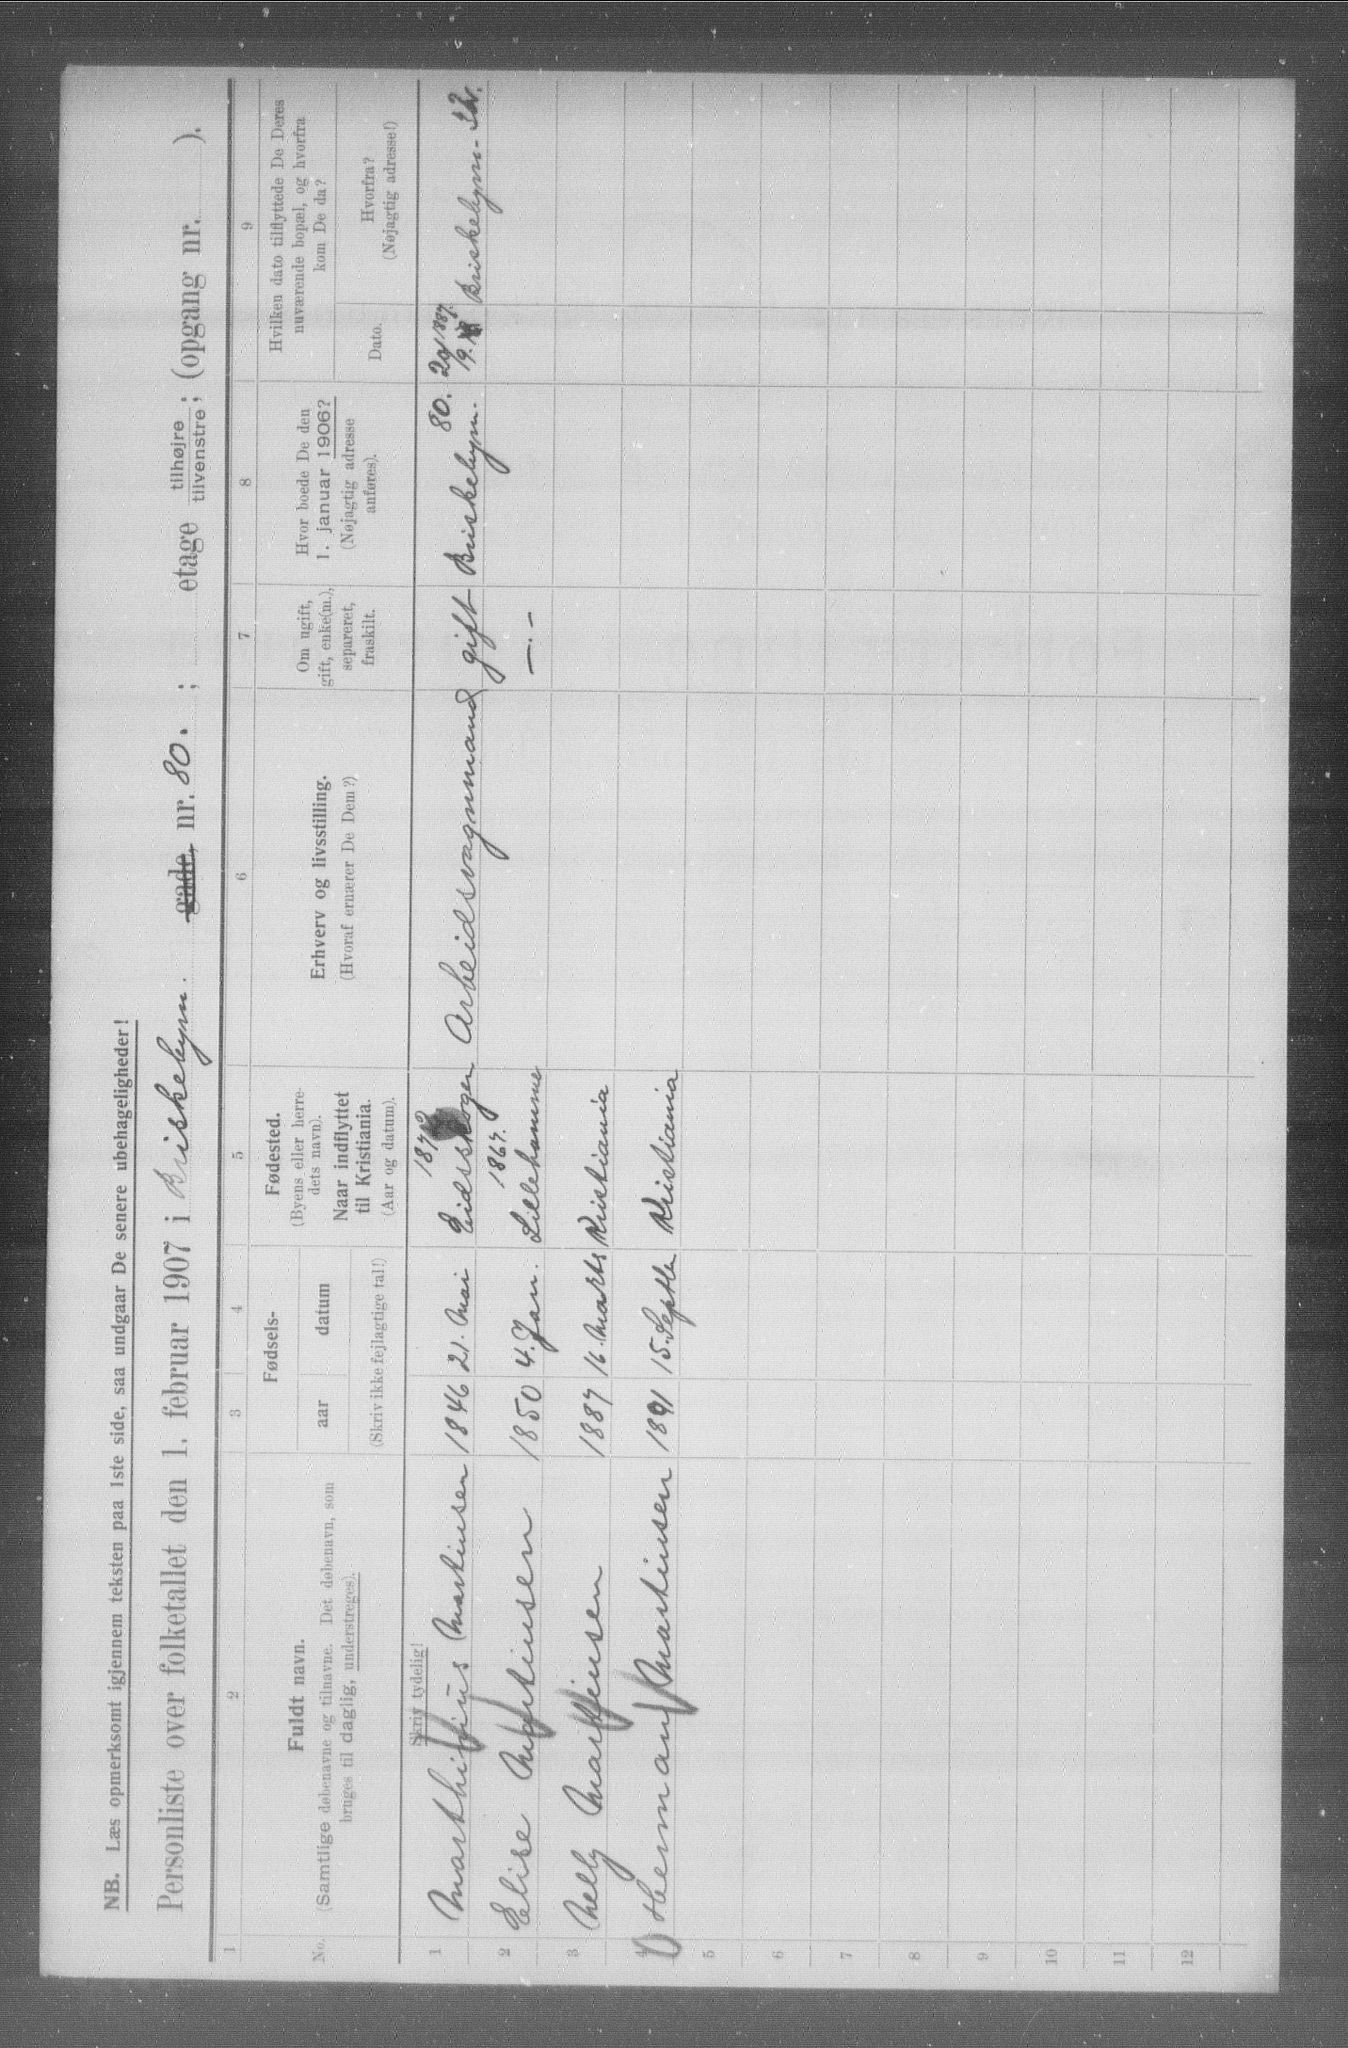 NB. Læs opmerksomt igjennem teksten paa 1ste side, saa undgaar De senere ubehageligheder!
Personliste over folketallet den 1. februar 1907 i Briskebyvn. gade, nr. 80. ; etage tilhøjre tilvenstre ; (opgang nr. ).
1 2 3 4 5 6 7 8 9
No.
Fuldt navn.
(Samtlige døbenavne og tilnavne. Det døbenavn, som
bruges til daglig, understreges).
Fødsels-
aar datum
(Skriv ikke fejlagtige tal!)
Fødested.
(Byens eller herre-
dets navn).
Naar indflyttet
til Kristiania.
(Aar og datum).
Erhverv og livsstilling.
(Hvoraf ernærer De Dem?)
Om ugift,
gift, enke(m.),
separeret,
fraskilt.
Hvor boede De den
1. januar 1906?
(Nøjagtig adresse
anføres).
Hvilken dato tilflyttede De Deres
nuværende bopæl, og hvorfra
kom De da?
Dato.
Hvorfra?
(Nøjagtig adresse!)
Skriv tydelig!
1 Marthinius Martinsen 1846 21. Mai Eidsskogen Arbeidsvagnmand gift Briskebyvn. 80. Briskebyvn.
2 Elise Martinsen 1850 4. Jan. 1867. Lillehammer —.—
3 Nelly Martinsen 1887 16. Marts Kristiania
4 Herman Martinsen 1891 15. Septbr Kristiania
5
6
7
8
9
10
11
12